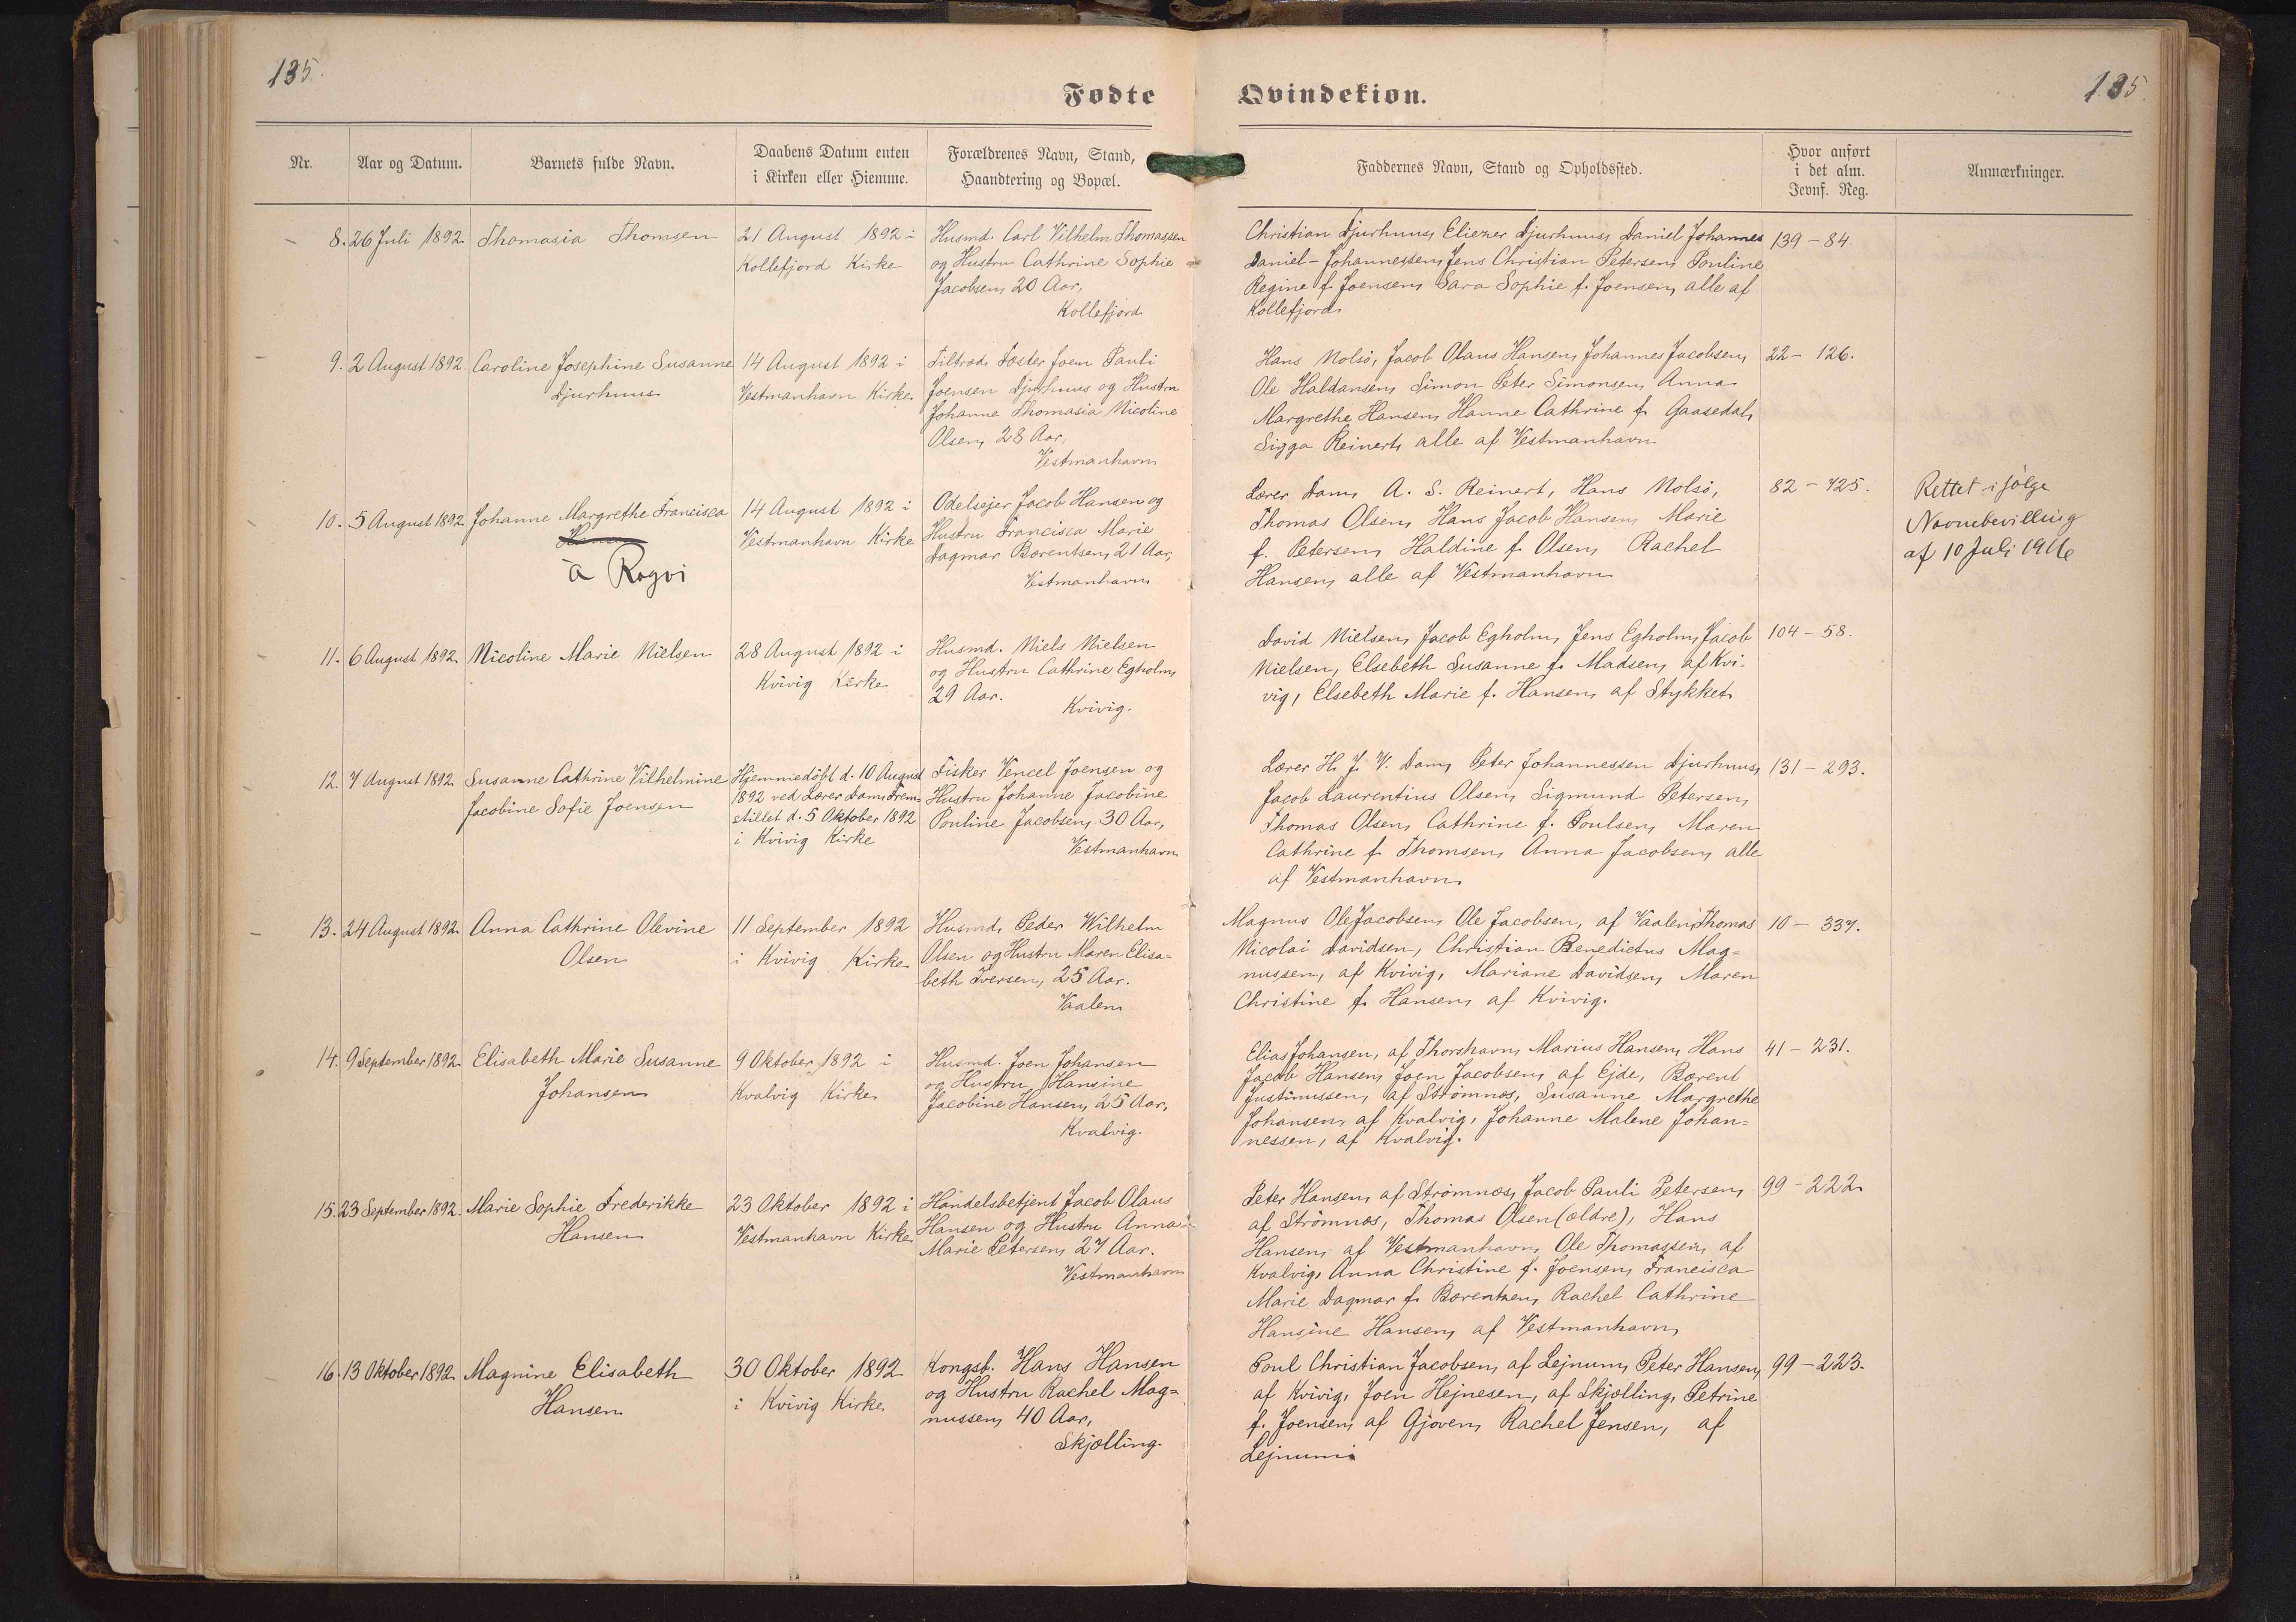 135.
135.
Fødte
Qvindekiøn.
Nr.
Aar og Datum.
Barnets fulde Navn.
Daabens Datum enten
i Kirken eller Hiemme.
Forældrenes Navn, Stand,
Haandtering og Bopæl.
Faddernes Navn, Stand og Opholdssted.
Hvor anført
i det alm.
Jevnf. Reg.
Anmærkninger.
8. 26 Juli 1892.
Thomasia Thomsen
21 August 1892 i
Kollefjord Kirke
Husmd. Carl Vilhelm Thomassen
og Hustru Cathrine Sophie
Jacobsen, 20 Aar,
Kollefjord
Christian Djurhuus, Eliezer Djurhuus, Daniel Johannes
Daniel-Johannessen, Jens Christian Petersen, Pouline
Regine f. Joensen, Sara Sophie f. Joensen, alle af
Kollefjord.
139 - 84.
9. 2 August 1892.
Caroline Josephine Susanne
Djurhuus
14 August 1892 i
Vestmanhavn Kirke.
Tiltræd. Fæster Joen Pauli
Joensen Djurhuus og Hustru
Johanne Thomasia Nicoline
Olsen, 28 Aar,
Vestmanhavn
Hans Molsø, Jacob Olaus Hansen, Johannes Jacobsen,
Ole Haldansen, Simon Peter Simonsen, Anna
Margrethe Hansen, Hanne Cathrine f. Gaasedal,
Sigga Reinert, alle af Vestmanhavn
22 - 126.
10. 5 August 1892.
Johanne Margrethe Francisca
Hansen
à Rógvi
14 August 1892 i
Vestmanhavn Kirke
Odelsejer Jacob Hansen og
Hustru Francisca Marie
Dagmar Bærentsen, 21 Aar,
Vestmanhavn
Lærer Dam, A. S. Reinert, Hans Molsø,
Thomas Olsen, Hans Jacob Hansen, Marie
f. Petersen, Haldine f. Olsen, Rachel
Hansen, alle af Vestmanhavn
82 - 425.
Rettet ifølge
Navnebevilling
af 10 Juli 1916
11. 6 August 1892.
Nicoline Marie Nielsen
28 August 1892 i
Kvivig Kirke
Husmd. Niels Nielsen
og Hustru Cathrine Egholm,
29 Aar.
Kvivig.
David Nielsen, Jacob Egholm, Jens Egholm, Jacob
Nielsen, Elsebeth Susanne f. Madsen, af Kvi-
vig, Elsebeth Marie f. Hansen, af Stykket
104 - 58.
12. 7 August 1892.
Susanne Cathrine Vilhelmine
Jacobine Sofie Joensen
Hjemmedøbt d. 10 August
1892 ved Lærer Dam, Frem-
stillet d. 5 Oktober 1892
i Kvivig Kirke
Fisker Vencel Joensen og
Hustru Johanne Jacobine
Pouline Jacobsen, 30 Aar,
Vestmanhavn
Lærer H. J. V. Dam, Peter Johannessen Djurhuus,
Jacob Laurentius Olsen, Sigmund Petersen,
Thomas Olsen, Cathrine f. Poulsen, Maren
Cathrine f. Thomsen, Anna Jacobsen, alle
af Vestmanhavn.
131 - 293.
13. 24 August 1892.
Anna Cathrine Olevine
Olsen
11 September 1892
i Kvivig Kirke.
Husmd. Peder Wilhelm
Olsen og Hustru Maren Elisa-
beth Iversen, 25 Aar.
Vaalen
Magnus Ole Jacobsen, Ole Jacobsen, af Vaalen, Thomas
Nicolai Davidsen, Christian Benedictus Mag-
nussen, af Kvivig, Mariane Davidsen, Maren
Christine f. Hansen, af Kvivig.
10 - 337.
14. 9 September 1892.
Elisabeth Marie Susanne
Johansen
9 Oktober 1892 i
Kvalvig Kirke
Husmd. Joen Johansen
og Hustru Hansine
Jacobine Hansen, 25 Aar,
Kvalvig.
Elias Johansen, af Thorshavn, Marius Hansen, Hans
Jacob Hansen, Joen Jacobsen, af Ejde, Bærent
Justinussen, af Strømnæs, Susanne Margrethe
Johansen, af Kvalvig, Johanne Malene Johan-
nessen, af Kvalvig.
41 - 231.
15. 23 September 1892.
Marie Sophie Frederikke
Hansen
23 Oktober 1892 i
Vestmanhavn Kirke
Handelsbetjent Jacob Olaus
Hansen og Hustru Anna
Marie Petersen, 27 Aar.
Vestmanhavn
Peter Hansen, af Strømnæs, Jacob Pauli Petersen,
af Strømnæs, Thomas Olsen (ældre), Hans
Hansen, af Vestmanhavn, Ole Thomassen, af
Kvalvig, Anna Christine f. Joensen, Francisca
Marie Dagmar f. Bærentsen, Rachel Cathrine
Hansine Hansen, af Vestmanhavn,
99 - 222
16. 13 Oktober 1892.
Magnine Elisabeth
Hansen
30 Oktober 1892
i Kvivig Kirke
Kongsf. Hans Hansen
og Hustru Rachel Mag-
nussen, 40 Aar,
Skjælling.
Poul Christian Jacobsen, af Lejnum, Peter Hansen,
af Kvivig, Joen Hejnesen, af Skjælling, Petrine
f. Joensen, af Gjoven, Rachel Jensen, af
Lejnum
99 - 223.